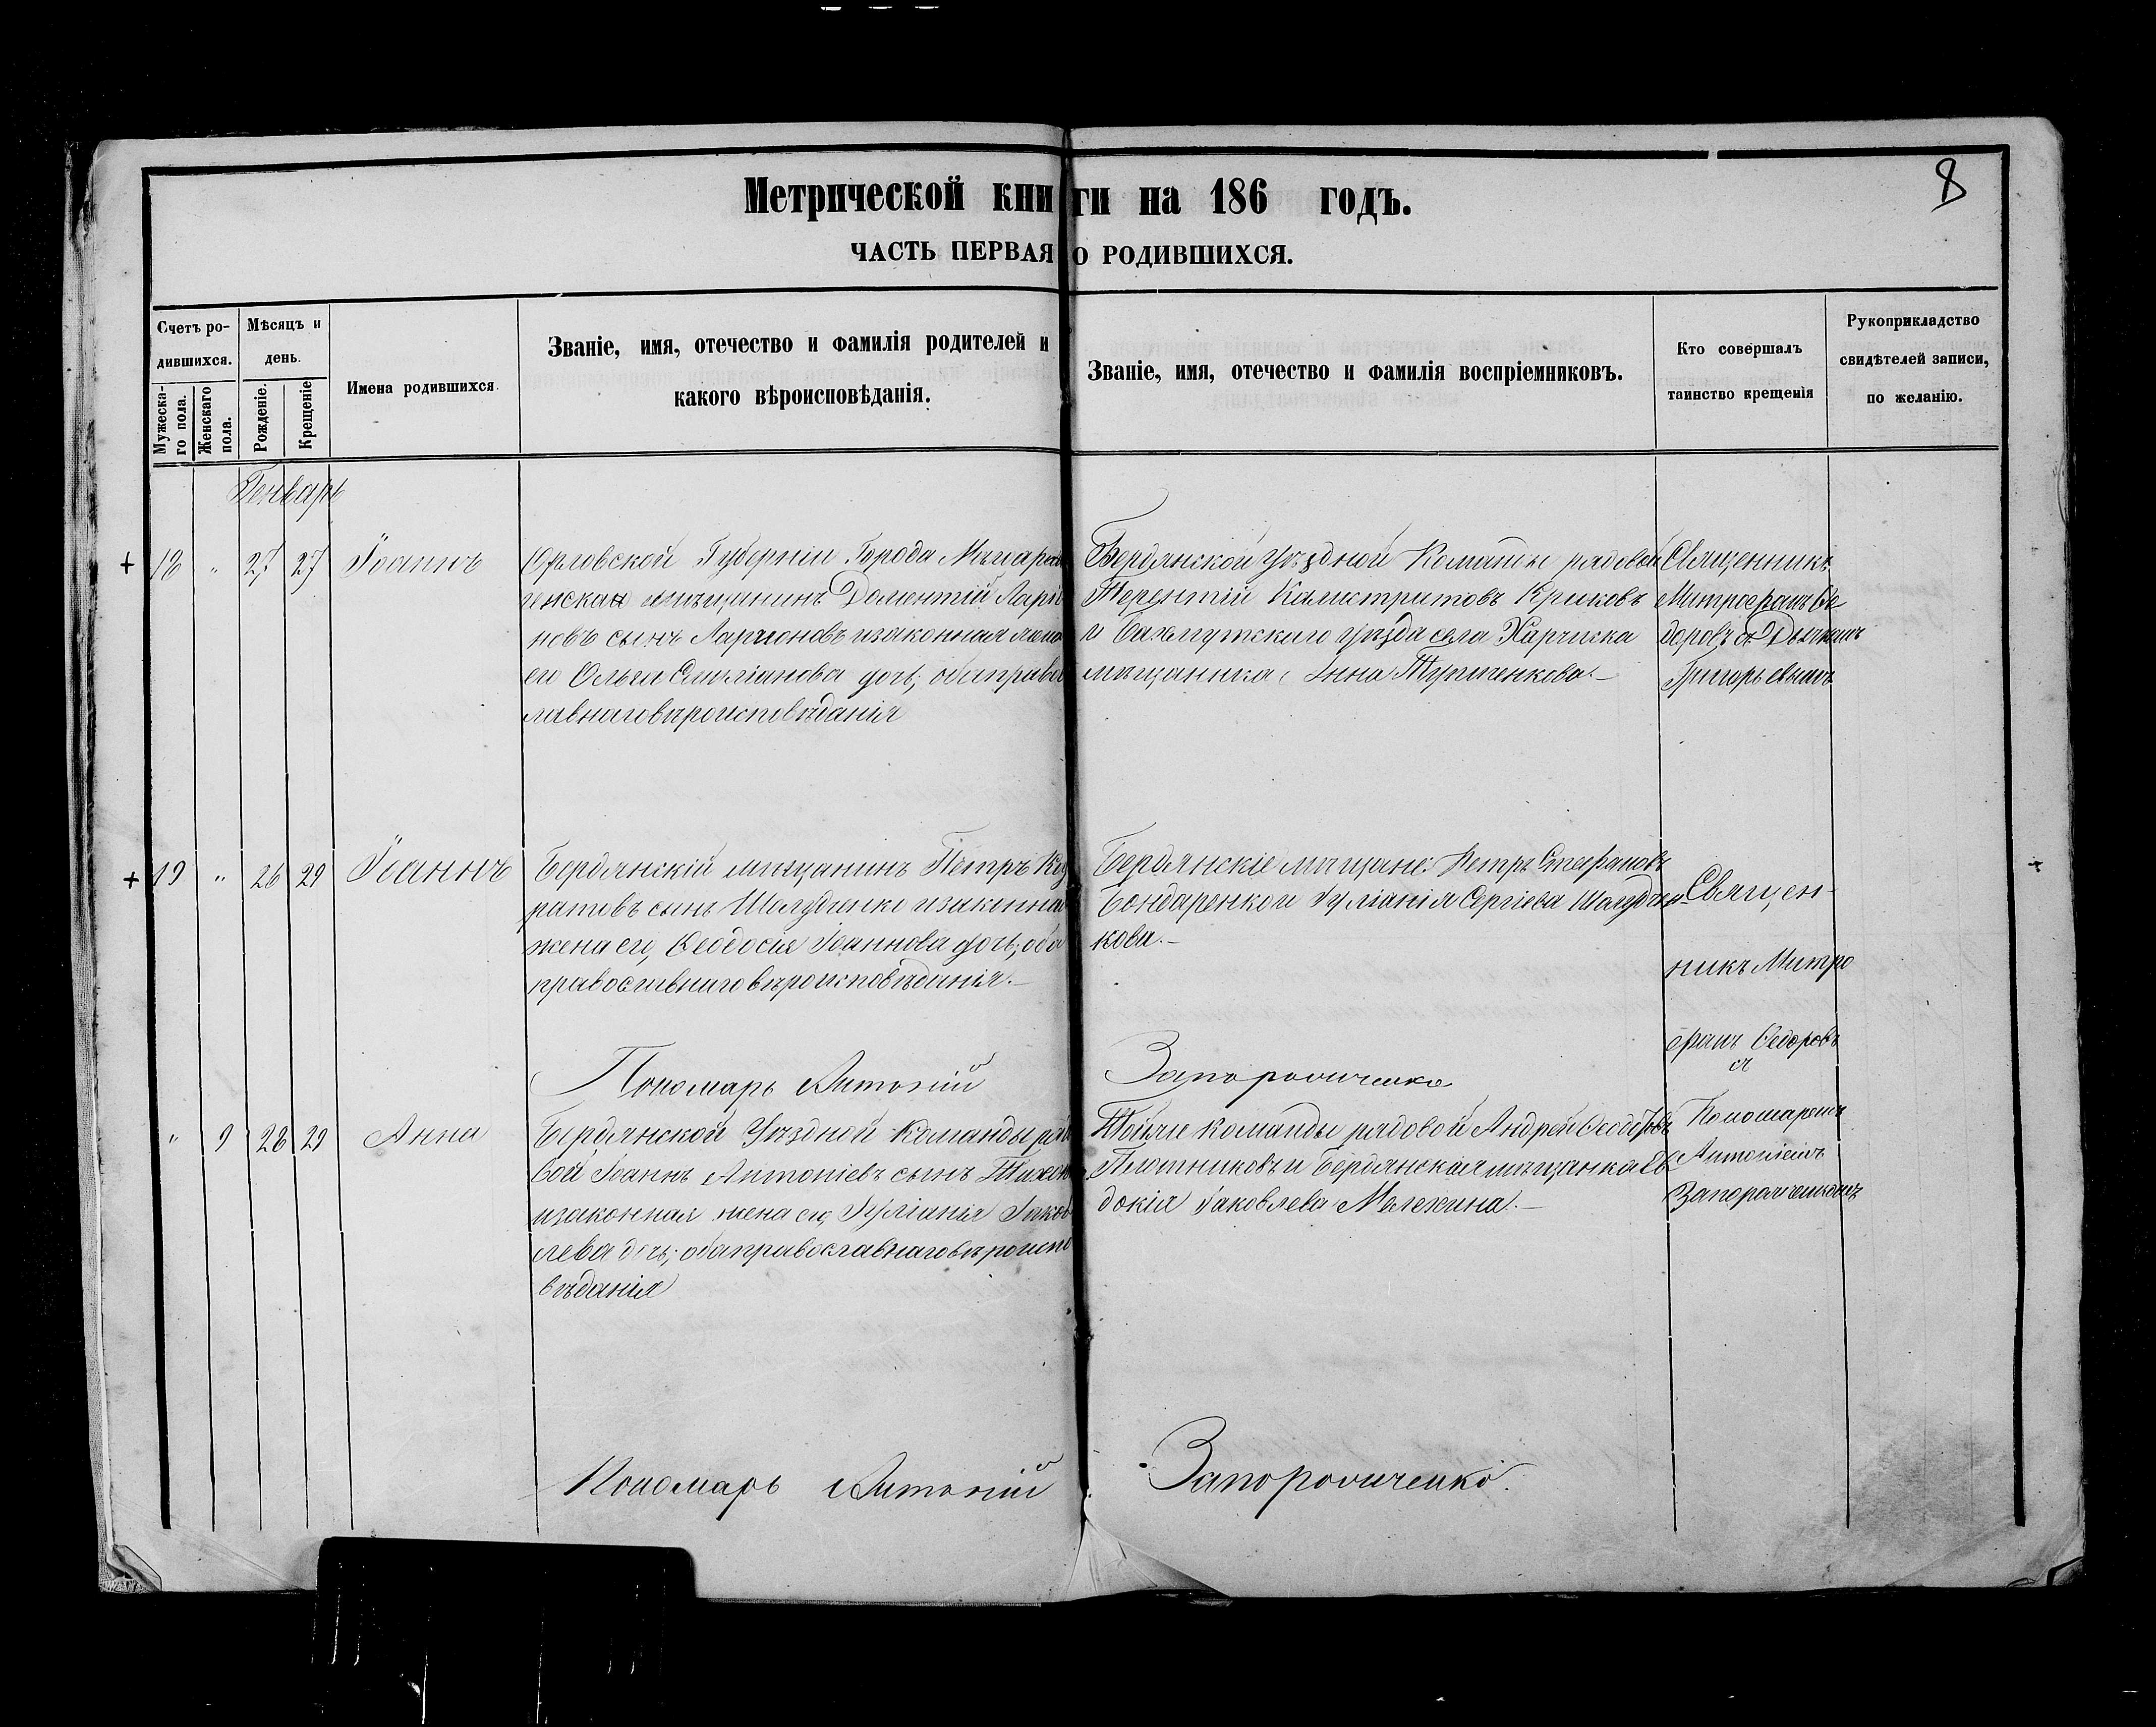 8
Метрической книги на 186 годъ.
ЧАСТЬ ПЕРВАЯ О РОДИВШИХСЯ.
Счетъ ро-
дившихся.
Мужеска-
го пола.
Женскаго
пола.
Мѣсяцъ и
день.
Рожденіе.
Крещеніе
Имена родившихся.
Званіе, имя, отечество и фамилія родителей и
какого вѣроисповѣданія.
Званіе, имя, отечество и фамилія воспріемниковъ.
Кто совершалъ
таинство крещенія
Рукоприкладство
свидѣтелей записи,
по желанію.
Генварь
+ 18 " 27 27 Іоаннъ
Орловской Губерніи Города
мѣщанинъ Дементій Ларіо
новъ сынъ Ларіоновъ изаконная жена
его Ольга Емиліанова дочь; оба правос
лавнаговѣроисповѣданія
Бердянской Уѣздной Команды рядовой
Терентій Калистратовъ Крюковъ
и Бахмутскаго уѣзда села
мѣщанка Анна
Священникъ
Митрофанъ Ѳе
доровъ съ Дьячкомъ
Григорьевымъ
+ 19 " 26 29 Іоаннъ
Бердянскій мѣщанинъ Петръ Код
ратовъ сынъ Шелудченко изаконная
жена его, Ѳеодосія Іоаннова дочь; оба
православнаговѣроисповѣданія.–
Бердянскіе мѣщане: Петръ Стефановъ
Бондаренко и Іуліанія Сергіева Шелудчен-
кова.–
Священ-
никъ Митро
фанъ Ѳедоровъ
съ
Пономаремъ
Антоніемъ
Запорожченкомъ
Пономарь Антоній Запорожченко
" 9 28 29 Анна
Бердянской Уѣздной Команды рядо
вой Іоаннъ Антоніевъ сынъ
изаконная жена его, Іуліанія Іаков
лева дочь; обаправославнаговѣроиспо
вѣданія
Тойже команды рядовой Андрей Ѳеодоровъ
Плотниковъ и Бердянская мѣщанка Ев
докія Іаковлева Малехина.–
Пономарь Антоній Запорожченко.